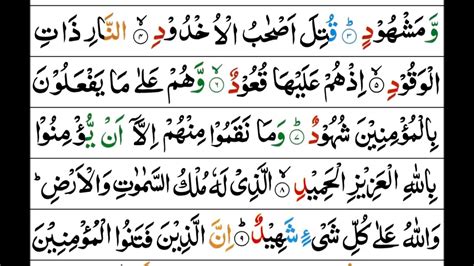 وَّ مَشۡهُوۡدٍ ؕ‏ ﴿۳﴾ قُتِلَ اَصۡحٰبُ الۡاُخۡدُوۡدِ ۙ‏ ﴿۴﴾ النَّارِ ذَاتِ
الۡوَقُوۡدِ ۙ‏ ﴿۵﴾ اِذۡ هُمۡ عَلَيۡهَا قُعُوۡدٌ ۙ‏ ﴿۶﴾ وَّهُمۡ عَلٰى مَا يَفۡعَلُوۡنَ
بِالۡمُؤۡمِنِيۡنَ شُهُوۡدٌ ؕ‏ ﴿۷﴾ وَمَا نَقَمُوۡا مِنۡهُمۡ اِلَّاۤ اَنۡ يُّؤۡمِنُوۡا
بِاللّٰهِ الۡعَزِيۡزِ الۡحَمِيۡدِ ۙ‏ ﴿۸﴾ الَّذِىۡ لَهٗ مُلۡكُ السَّمٰوٰتِ وَالۡاَرۡضِ ؕ
وَاللّٰهُ عَلٰى كُلِّ شَىۡءٍ شَهِيۡدٌ ؕ‏ ﴿۹﴾ اِنَّ الَّذِيۡنَ فَتَنُوا الۡمُؤۡمِنِيۡنَ